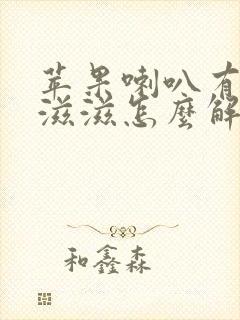 苹果喇叭有
滋滋怎麼解
和鑫森